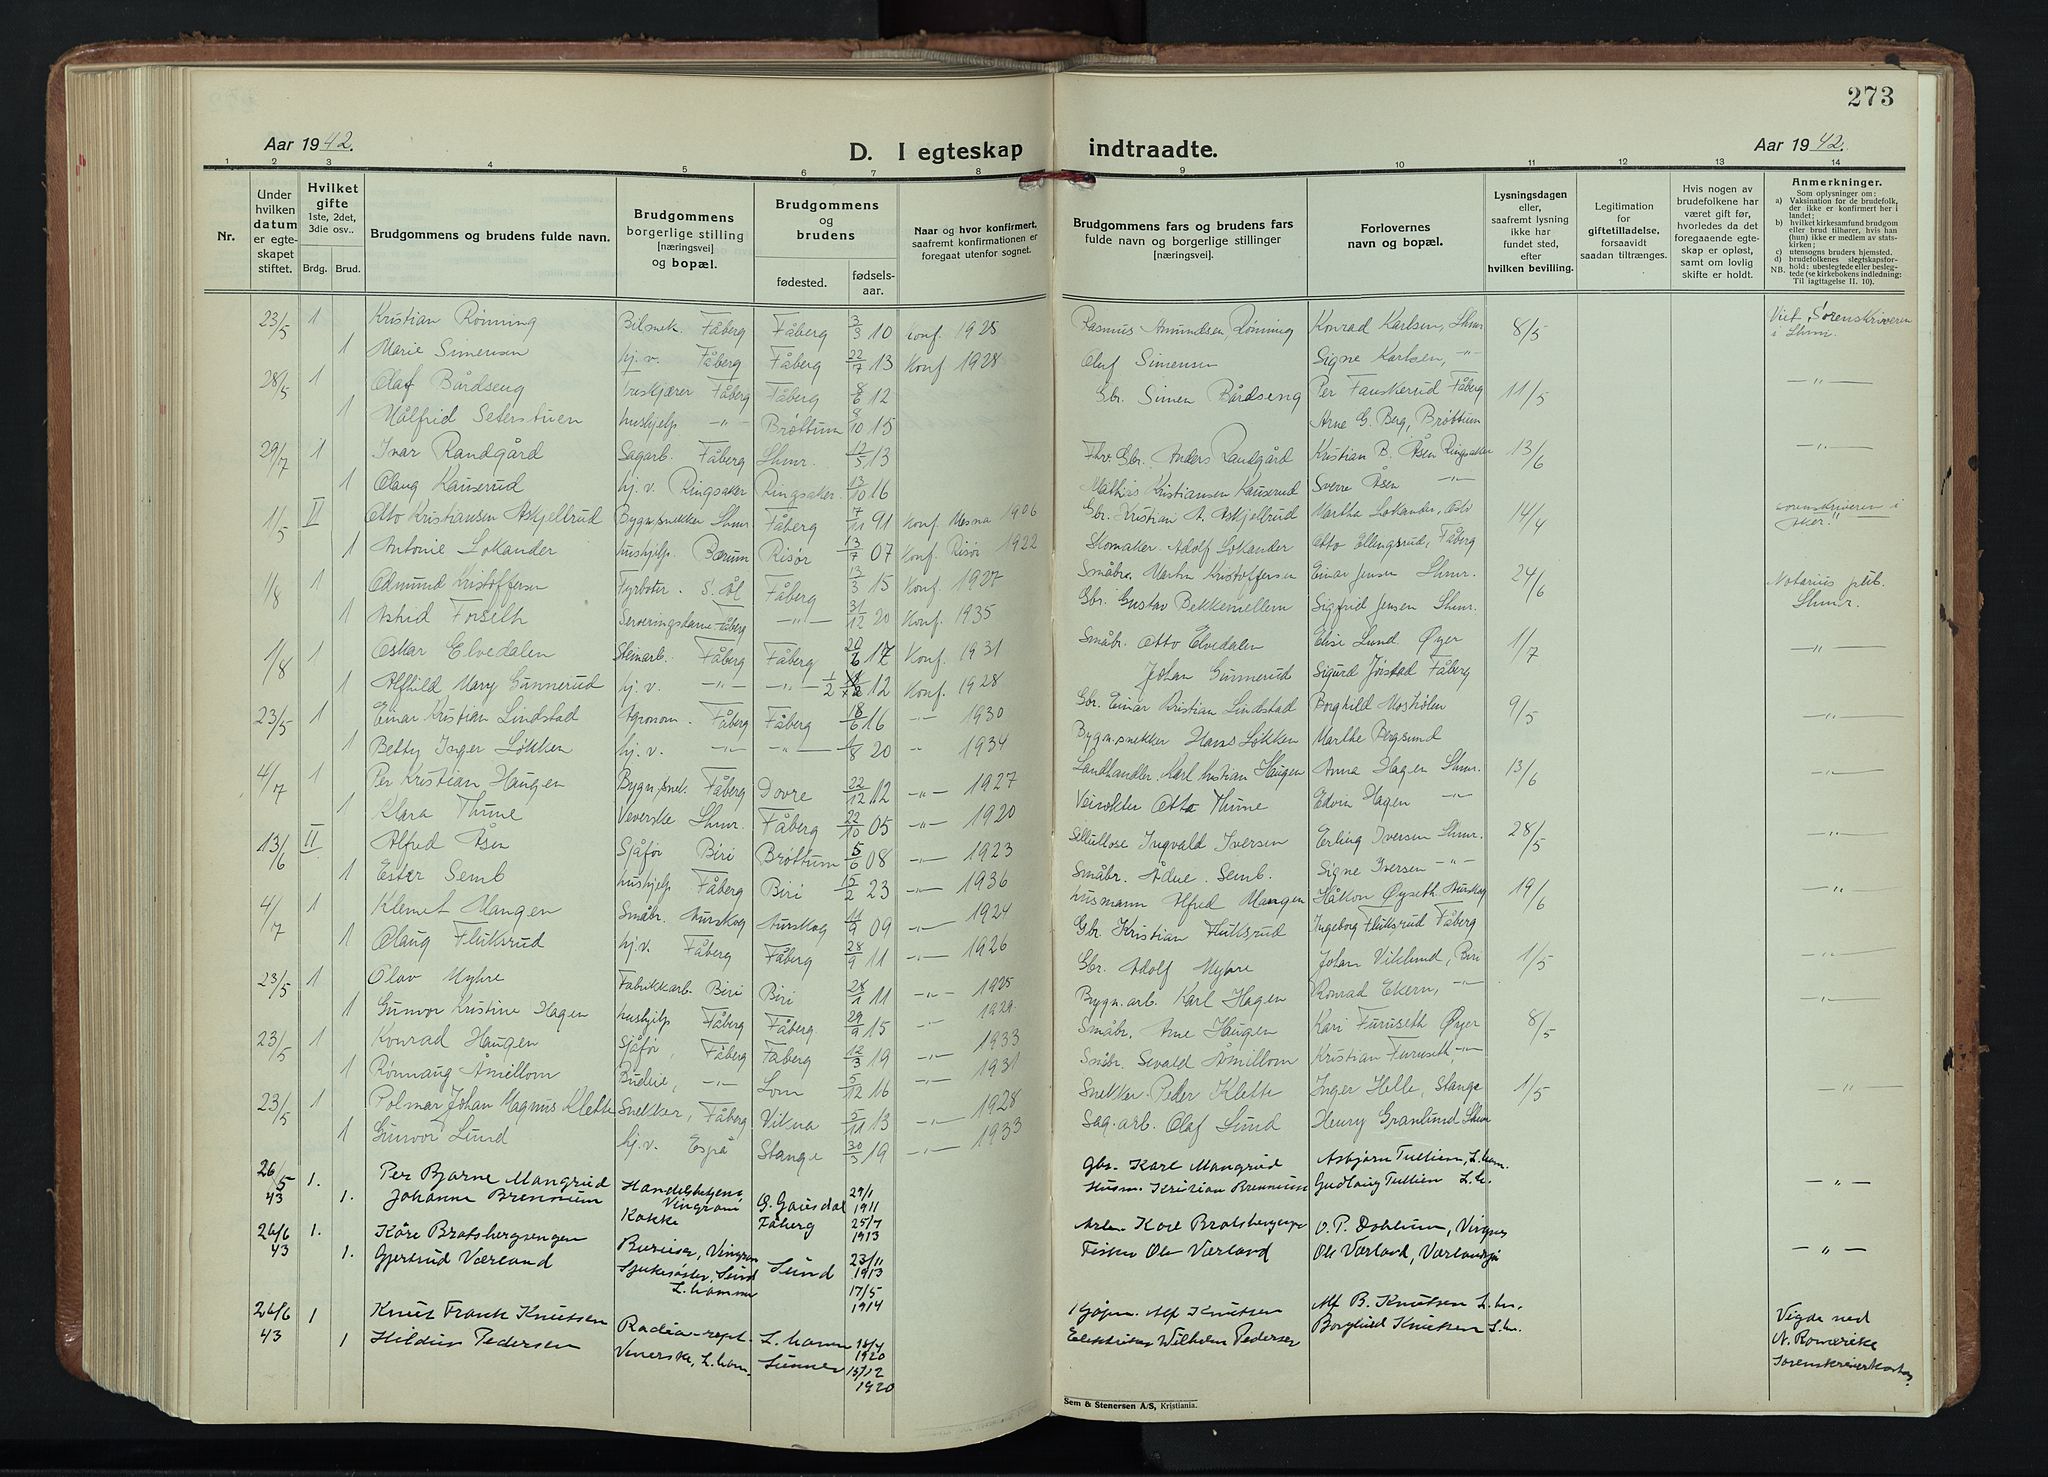 273
Aar 1942.
D. I egteskap indtraadte.
Aar 1942.
1 2 3 4 5 6 7 8 9 10 11 12 13 14
Nr.
Under hvilken datum er egteskapet stiftet.
Hvilket gifte 1ste, 2det, 3die osv..
Brdg. Brud.
Brudgommens og brudens fulde navn.
Brudgommens borgerlige stilling [næringsvei] og bopæl.
Brudgommens og brudens
fødested. fødsels-aar.
Naar og hvor konfirmert, saafremt konfirmationen er foregaat utenfor sognet.
Brudgommens fars og brudens fars fulde navn og borgerlige stillinger [næringsvei].
Forlovernes navn og bopæl.
Lysningsdagen eller, saafremt lysning ikke har fundet sted, efter hvilken bevilling.
Legitimation for giftetilladelse, forsaavidt saadan tiltrænges.
Hvis nogen av brudefolkene har været gift før, hvorledes da det foregaaende egteskap er opløst, samt om lovlig skifte er holdt.
Anmerkninger.
Som oplysninger om:
a) Vaksination for de brudefolk, der ikke er konfirmert her i landet;
b) hvilket kirkesamfund brudgom eller brud tilhører, hvis han (hun) ikke er medlem av statskirken;
c) utensogns bruders hjemsted.
d) brudefolkenes slegtskapsforhold: ubeslegtede eller beslegtede (se kirkebokens indledning: NB. Til iagttagelse II. 10).
23/5 1 Kristian Rønning Bilmek. Fåberg Fåberg 3/3 10 conf. 1925 Rasmus Amundsen Rønning Konrad Karlsen, Lhmr 8/5 Viet, Sorenskriveren i Lhmr.
1 Marie Simensen hj. v. Fåberg Fåberg 22/7 13 Konf 1928 Oluf Simensen Signe Karlsen, -"-
28/5 1 Olaf Bårdseng Fåberg Fåberg 8/6 12 Gbr. Simen Bårdseng Per Fauskerud Fåberg 11/5 -"-
1 Målfrid Seterstuen hushjelp -"- Brøttum 8/10 15 Arne G. Berg, Brøttum
29/7 1 Ivar Randgård Sagarb. Fåberg Lhmr. 12/5 13 Fhv. Gbr. Anders Randgård Kristian B. Åsen Ringsaker 13/6 -"-
1 Olaug Kauserud hj. v. Ringsaker Ringsaker 13/10 16 Mathis Kristiansen Kauserud Sverre Åsen -"-
1/5 II Otto Kristiansen Askjeltrud Bygn.snekker Lhmr. Fåberg 7/11 91 Konf. Mesna 1906 Gbr. Kristian A. Askjeltrud Martha Lokander, Oslo 14/4 sorenskriveren i
1 Antonie Lokander hushjelp. Bærum Risør 13/7 07 Konf. Risør 1922 Skomaker. Adolf Lokander Otto Ellingsrud, Fåberg
1/8 1 Edmund Kristoffersen Fyrbøter. S. Ål Fåberg 13/3 15 Konf. 1927 Småbr. Martin Kristoffersen Einar Jensen Lhmr. 24/6 Notarius publ. Lhmr.
1 Astrid Forseth Serveringsdame Fåberg -"- 31/12 20 Konf. 1935 Gbr. Gustav Bekkemellem Sigfrid Jensen Lhmr.
1/8 1 Oskar Elvedalen Steinarb. Fåberg Fåberg 20/6 17 Konf. 1931 Småbr. Otto Elvedalen Elise Lund Øyer 1/7 -"-
1 Alfhild Mary Gunnerud hj. v. -"- -"- 1/2 12 Konf. 1928 Johan Gunnerud Sigurd Jørstad Fåberg
23/5 1 Einar Kristian Lindstad Agronom. Fåberg Fåberg 18/6 16 -"- 1930 Gbr. Einar Kristian Lindstad Borghild 9/5 -"-
1 Betty Inger Løkken hj. v. -"- -"- 20 " 1934 Bygn.snekker Hans Løkken Marthe Bergsund
4/7 1 Per Kristian Haugen Bygn.snek. Fåberg Dovre 22/12 12 -"- 1927 Landhandler. Karl Kristian Haugen Anna Hagen Lhmr. 13/6 -"-
1 Klara Thune Veverske Lhmr. Fåberg 22/10 05 -"- 1920 Veivokter Otto Thune Edvin Hagen -"-
13/6 II Alfred Åsen Sjåfør Biri Brøttum 5/6 08 -"- 1923 Sellullose Ingvald Iversen Erling Iversen Lhmr. 28/5 -"-
1 Ester Semb hushjelp Fåberg Biri 15/2 23 -"- 1936 Småbr. Semb. Signe Iversen -"-
4/7 1 Klemet Mangen Småbr. Aurskog Aurskog 11/9 09 -"- 1924 husmann Alfred Mangen Håkon Øyseth Aurskog 19/6 -"-
1 Olaug Fluksrud hj. v. Fåberg Fåberg 28/9 11 -"- 1926 Gbr. Kristian Fluksrud Ingeborg Fluksrud Fåberg
23/5 1 Olav Myhre Fabrikkarb. Biri Biri 28/1 11 -"- 1925 Gbr. Adolf Myhre Johan Viklund, Biri 1/5 -"-
1 Gunvor Kristine Hagen hushjelp Fåberg Fåberg 29/9 15 -"- 1929. Bygn.arb. Karl Hagen Konrad Ekern, -"- -"-
23/5 1 Konrad Haugen Sjåfør, Fåberg Fåberg 12/3 19 -"- 1933 Småbr. Arne Haugen Kari Furuseth Øyer 8/5
1 Rønnaug Åmillom Budeie, -"- Lom 5/12 16 -"- 1931 Småbr. Sevald Åmillom Kristian Furuseth, -"-
23/5 1 Polmar Johan Magnus Klette Snekker, Fåberg Vikna 5/11 13 -"- 1928 Snekker Peder Klette Inger Helle, Stange 1/5 -"-
1 Gunvor Lund hj. v. Espå Stange 30/3 19 -"- 1933 Sag.arb. Olaf Lund Henry Granlund Lhmr
26/5 43 1. Per Bjarne Mangrud Vingrom G. Gausdal 29/1 1911 Gbr. Karl Mangrud Asbjørn Tullien, L.ham.
1. Johanne Brennum Kokke Fåberg 25/7 1913 Husm. Kristian Brennum Gudlaug Tullien L.h. -"-
26/6 43 1. Kåre Bratsbergsengen Bureiser, Vingrom Sund 23/11 1913 Arb. Karl O. P. Dahlum,
1. Gjertrud Værland Sjukesøster, Sund L.hammer 17/5 1914 Fisker Ole Værland Ole Værland, -"-
26/6 43 1 Knut Frank Knutsen Radio-rept. L.hamm 1920 Alf Knutsen Alf B. Knutsen L.h. Vigde ved N. Romerike
1 Hildur Pedersen L.ham. 15/12 1920 Wilhelm Pedersen Borghild Knutsen L.h.
Sem & Stenersen A/S, Kristiania.